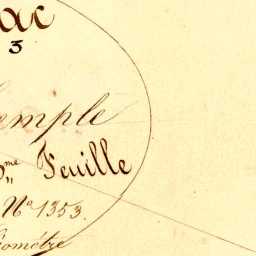 ac
3
emple
3me Feuille
No 1353.
éomètre